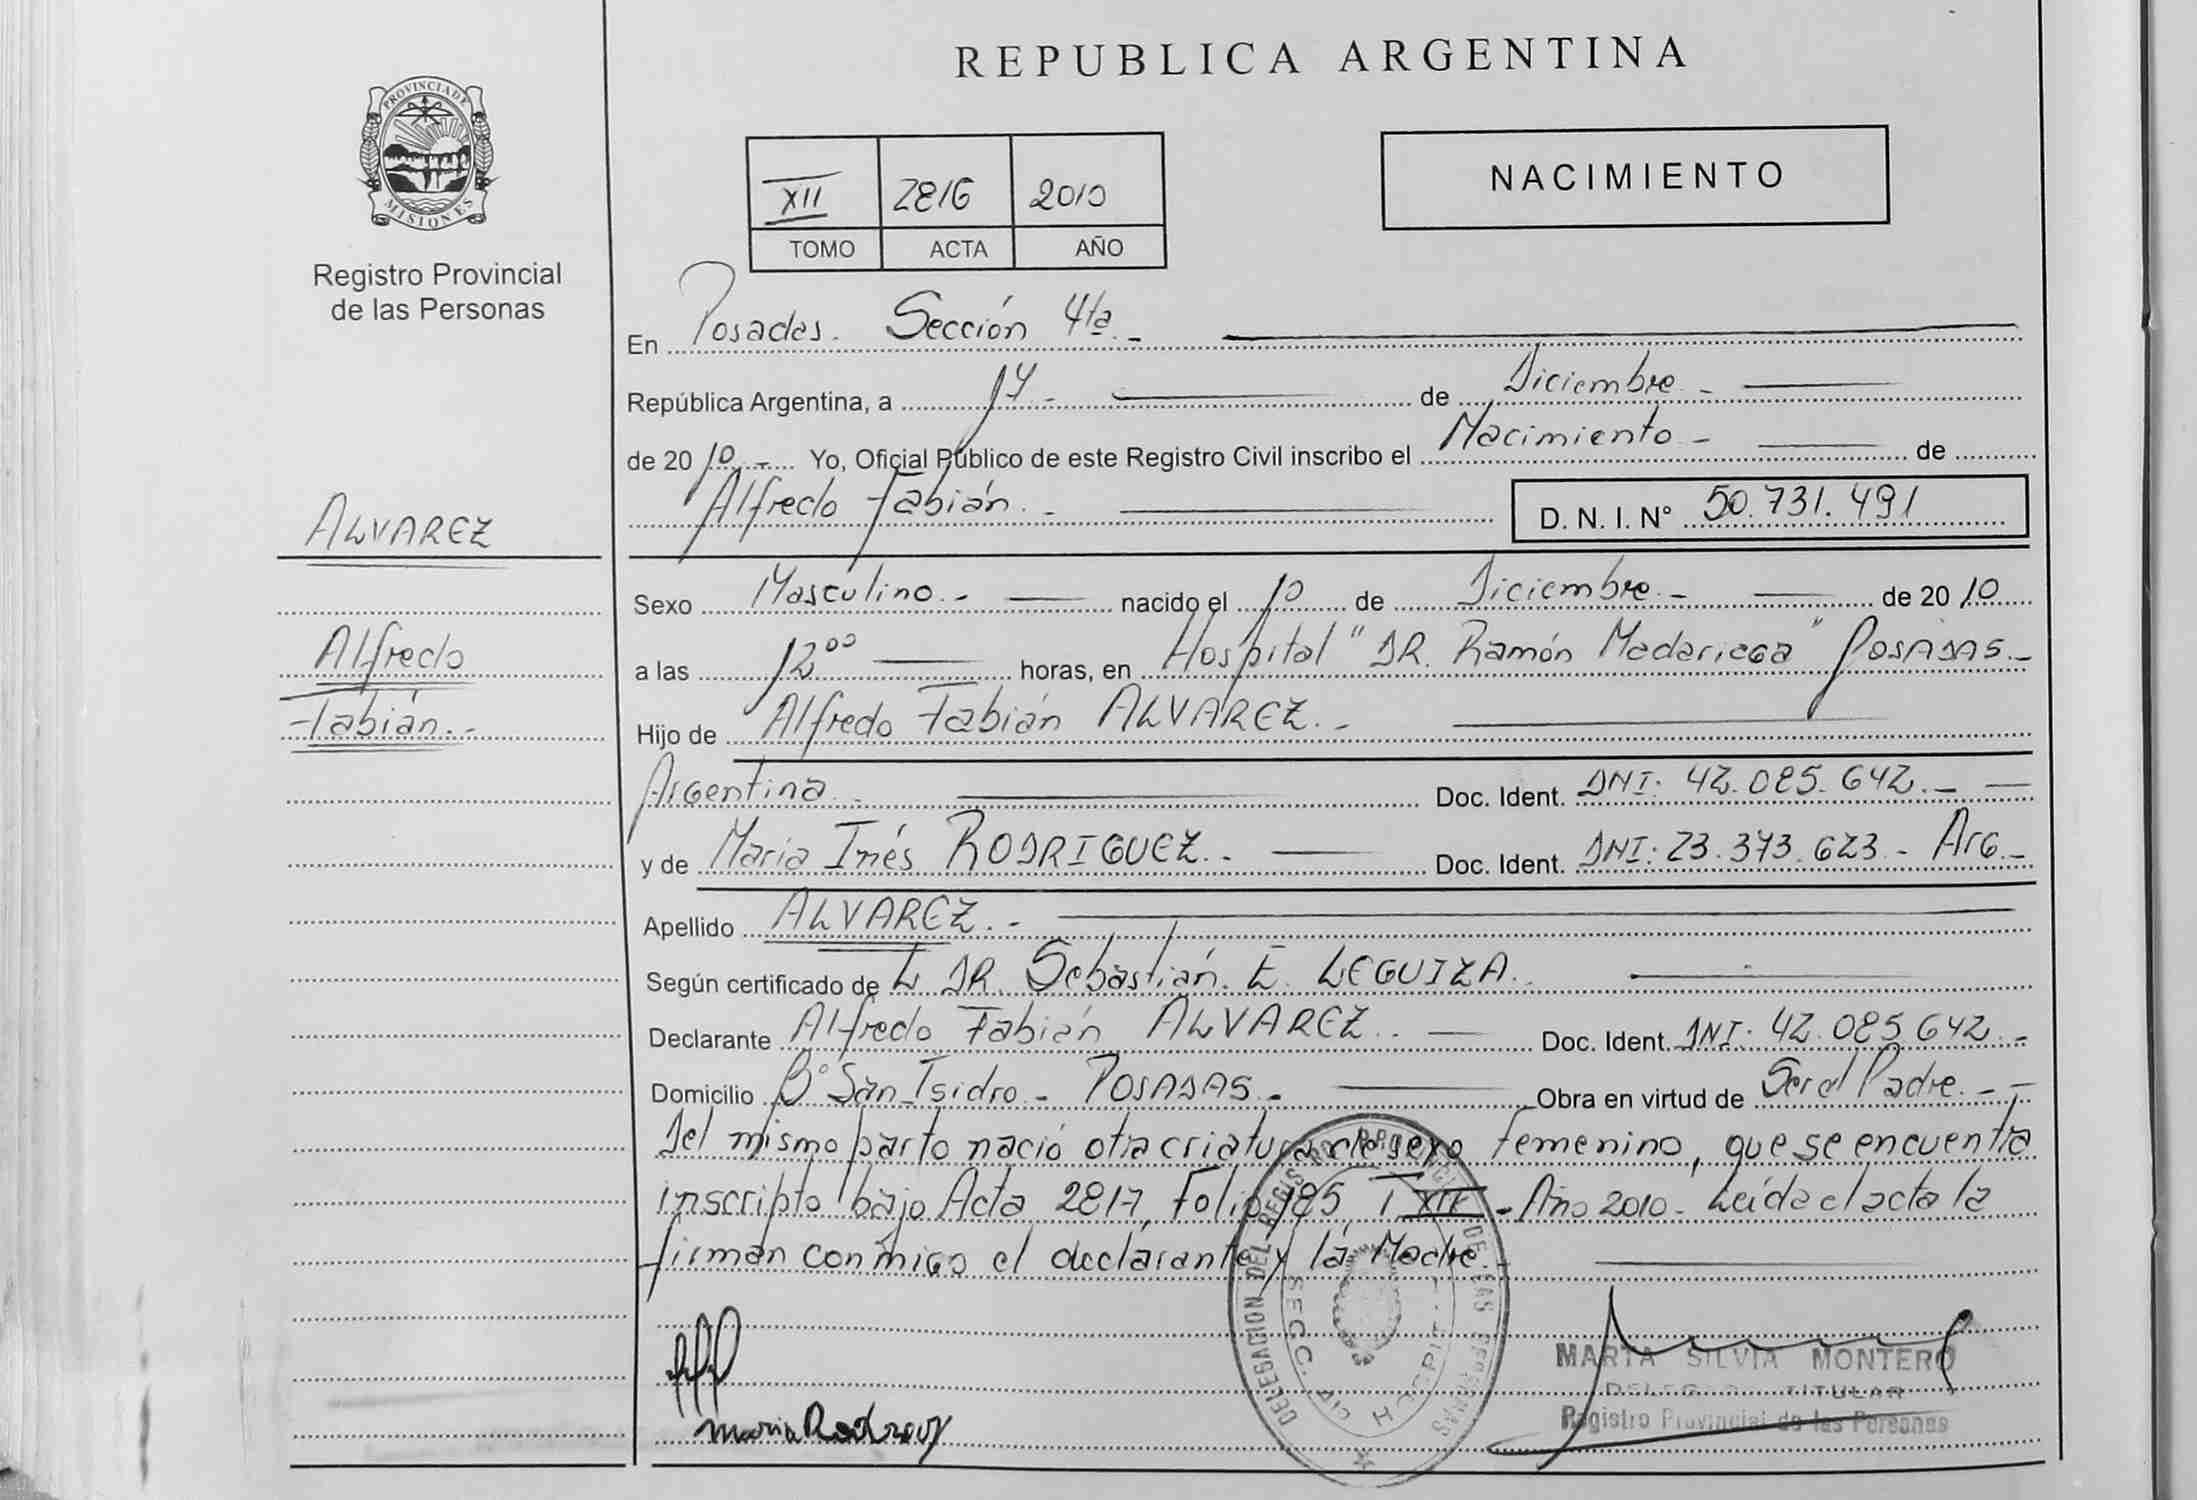 REPUBLICA ARGENTINA
PROVINCIA DE
MISIONES
Registro Provincial
de las Personas
XII 2816 2010
TOMO ACTA AÑO
NACIMIENTO
En Posadas. Sección 4ta.-
República Argentina, a 14.- de Diciembre.-
de 2010.- Yo, Oficial Público de este Registro Civil inscribo el Nacimiento.- de
Alfredo Fabián.- D. N. I. N° 50.731.491
ALVAREZ
Alfredo
Fabián.-
Sexo Masculino.- nacido el 10 de Diciembre.- de 2010
a las 12⁰⁰ horas, en Hospital "DR. Ramón Madariaga" POSADAS.-
Hijo de Alfredo Fabián ALVAREZ.-
Argentina.- Doc. Ident. DNI: 42.085.642.-
y de Maria Inés RODRIGUEZ.- Doc. Ident. DNI: 23.373.623.- Arg.-
Apellido ALVAREZ.-
Según certificado de L DR. Sebastián. E. LEGUIZA.
Declarante Alfredo Fabián ALVAREZ.. Doc. Ident. DNI: 42.085.642.-
Domicilio B° San Isidro.- POSADAS.- Obra en virtud de Ser el Padre.-
Del mismo parto nació otra criatura de sexo femenino, que se encuentra
inscripto bajo Acta 2817, Folio 185, T XII - Año 2010.- Leída el acta la
firman conmigo el declarante y la Madre.-
Maria Rodriguez
DELEGACION DEL REGISTRO PROVINCIAL DE LAS PERSONAS
SECC. 4ta
MARTA SILVIA MONTERO
DELEGADA TITULAR
Registro Provincial de las Personas